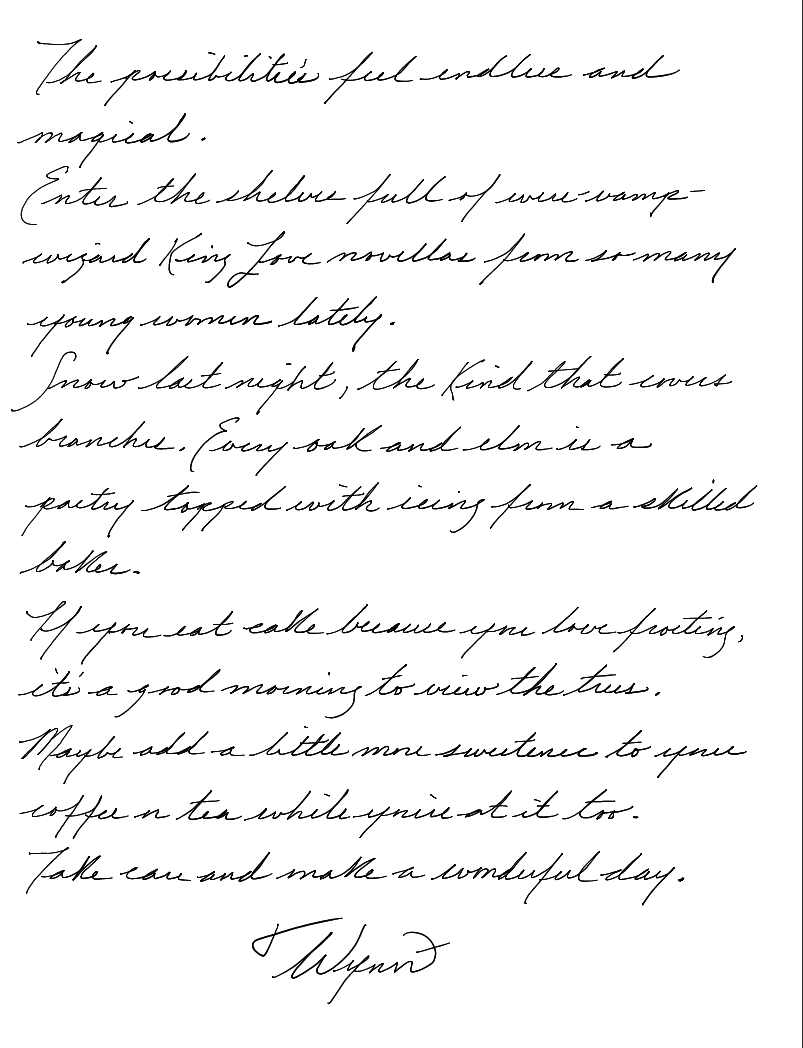 The possibilities feel endless and
magical.
Enter the shelves full of were-vamp-
wizard King Love novellas from so many
young women lately.
Snow last night, the kind that covers
branches. Every oak and elm is a
pastry topped with icing from a skilled
baker.
If you eat cake because you love frosting,
it's a good morning to view the trees.
Maybe add a little more sweetener to your
coffee or tea while you're at it too.
Take care and make a wonderful day.
Wynn